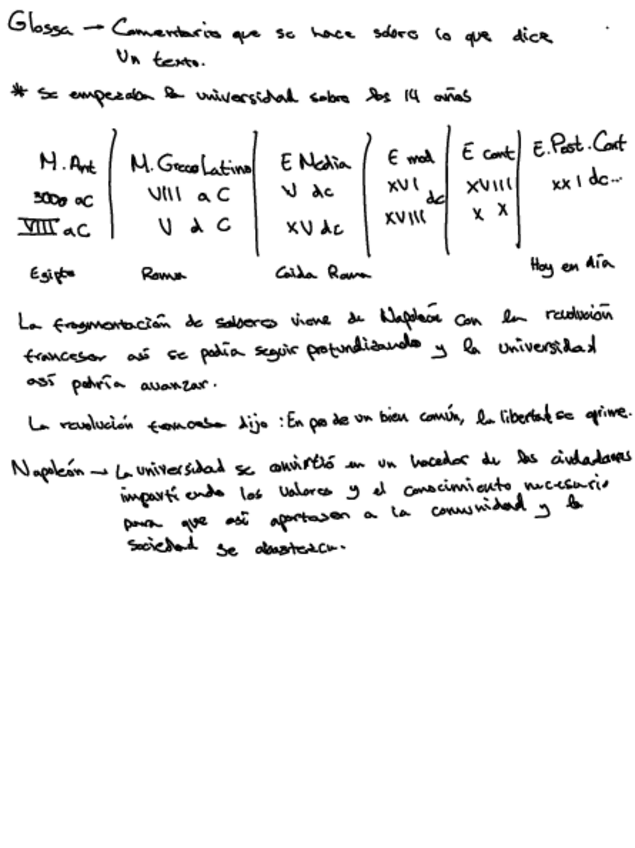 Glossa → Comentario que se hace sobre lo que dice
un texto.
* Se empezaba la universidad sobre los 14 años
M. Ant | M. Greco Latino | E Media | E mod | E cont | E. Post. Cont
3000 aC | VIII a C | V dc | XVI dc | XVIII | XXI dc...
VIII aC | V d C | XV dc | XVIII | X X
Egipto Roma Caida Roma Hoy en día
La fragmentación de saberes viene de Napoleón con la revolución
francesa así se podía seguir profundizando y la universidad
así podría avanzar.
La revolución francesa dijo: En pos de un bien común, la libertad se
Napoleón → La universidad se convirtió en un hacedor de los ciudadanos
impartiendo los valores y el conocimiento necesario
para que así aportasen a la comunidad y la
sociedad se